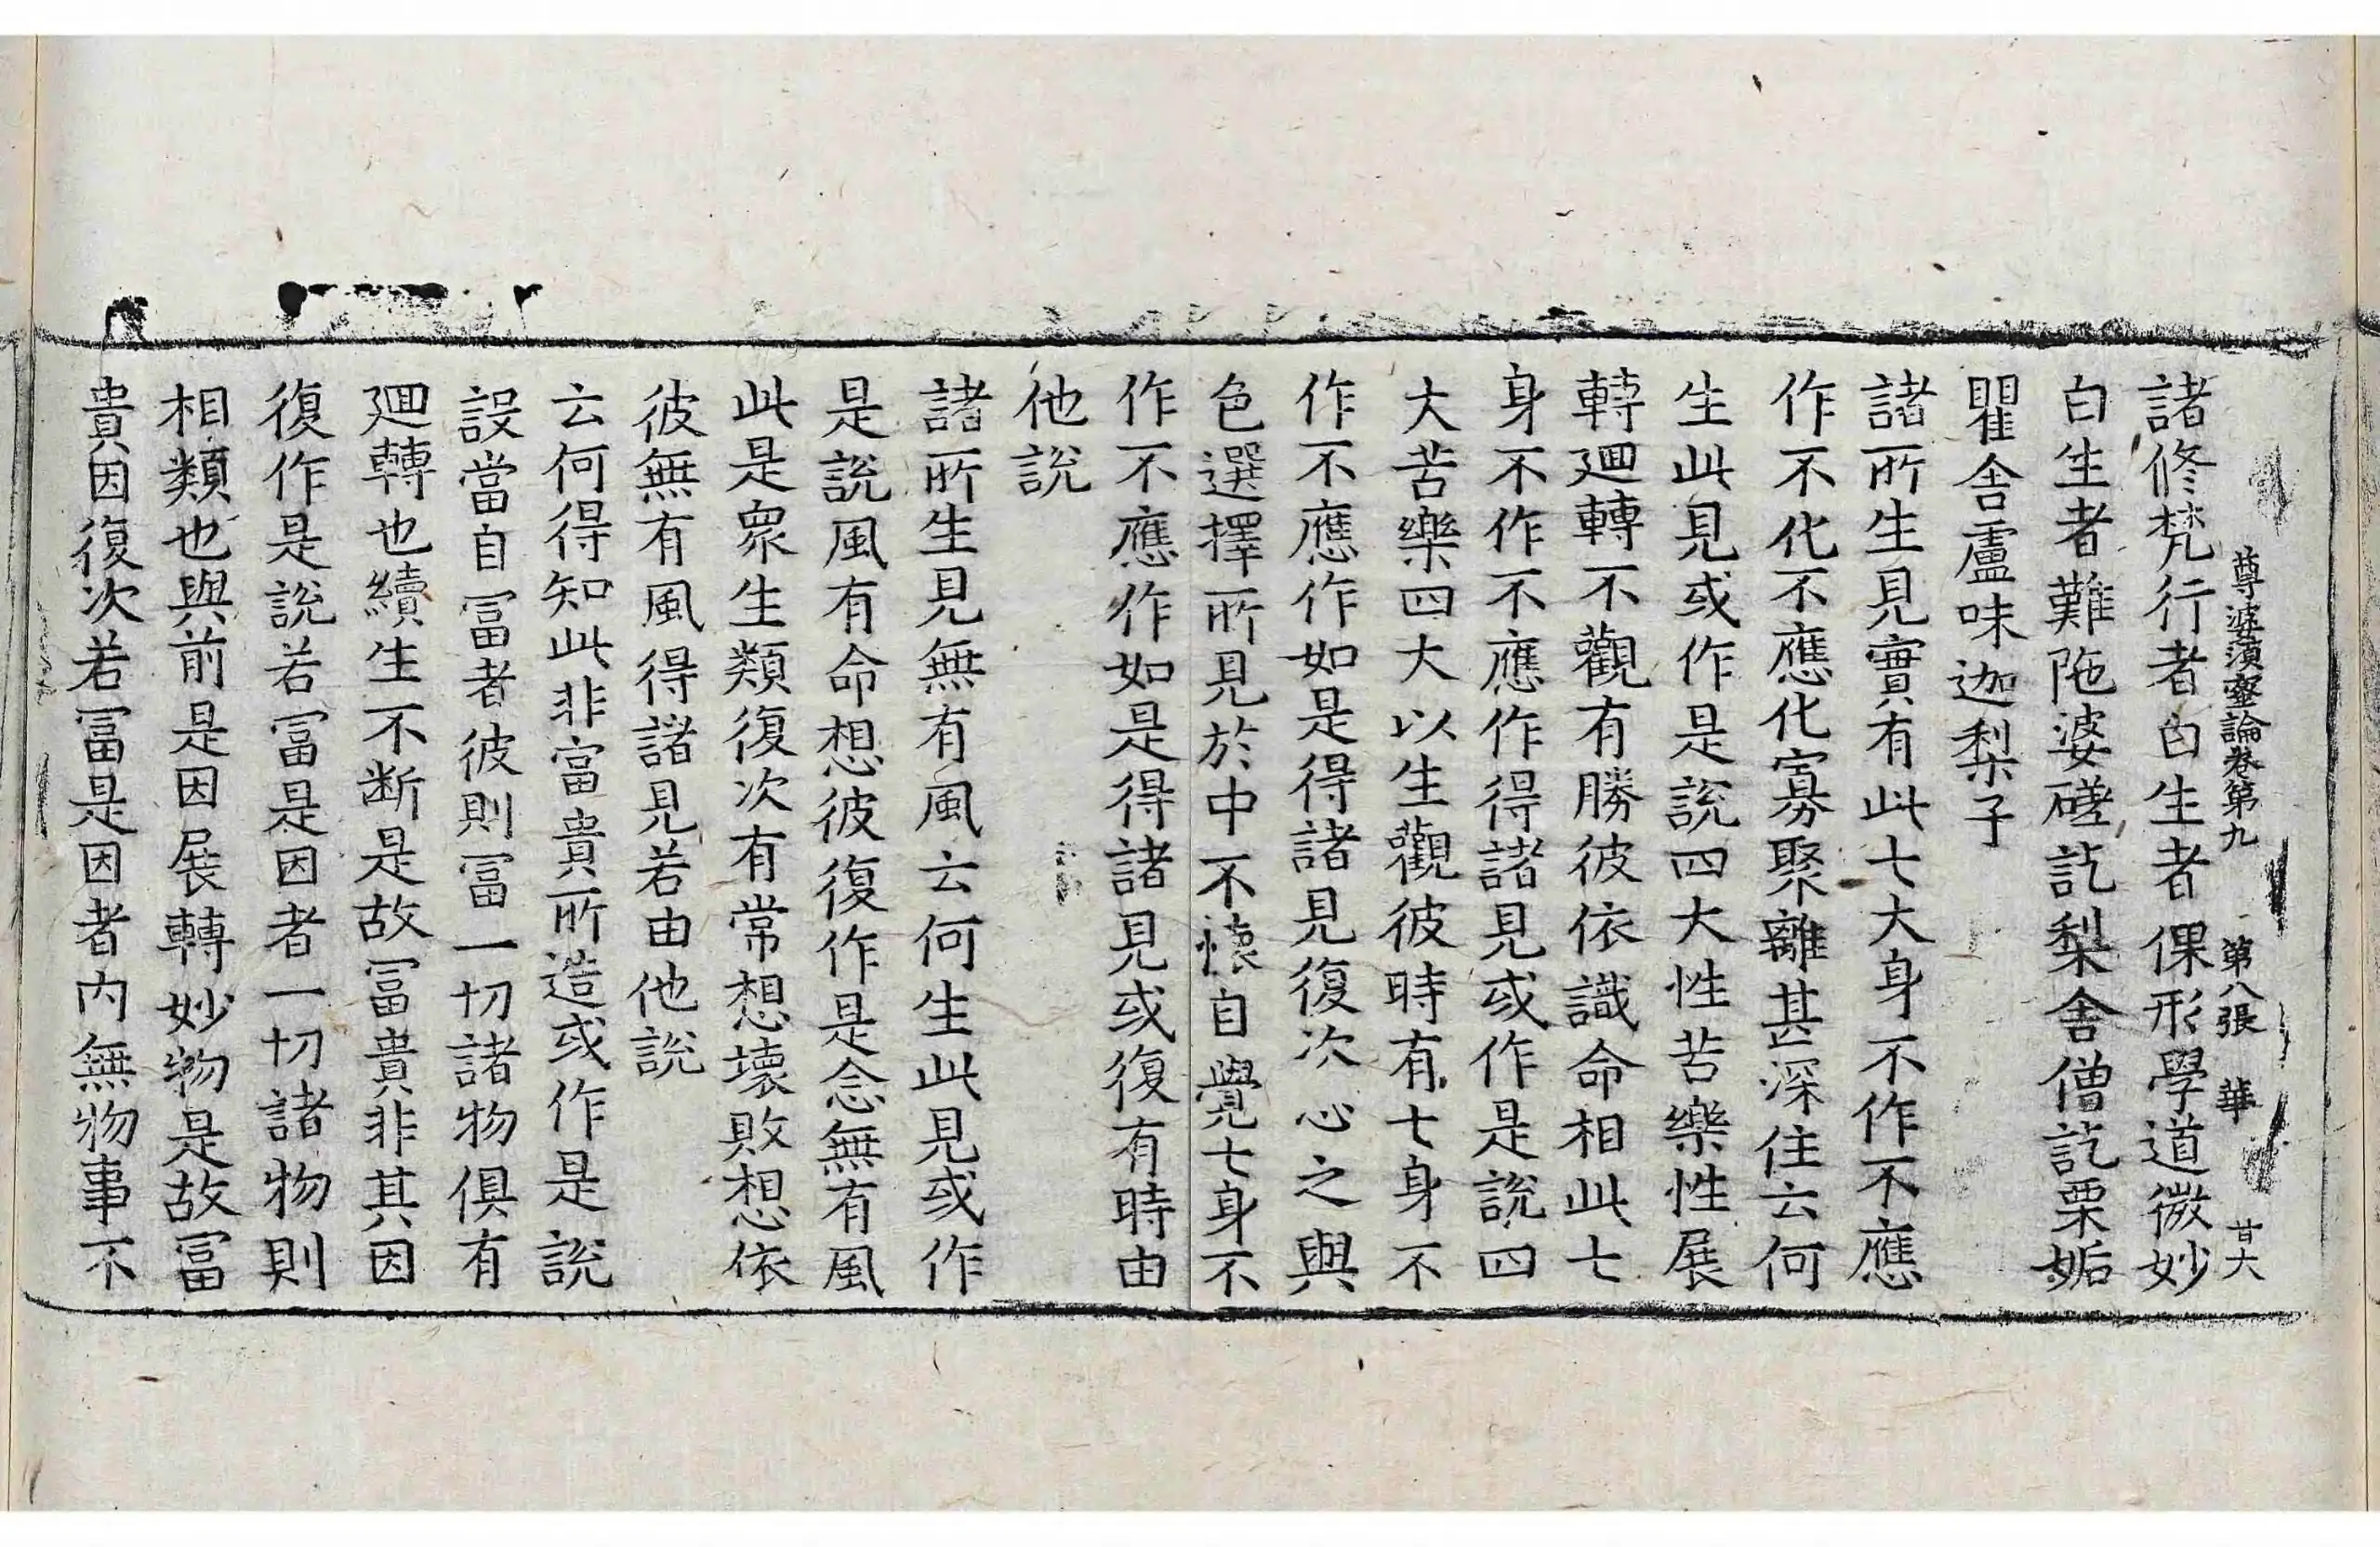 尊婆須蜜論卷第九 第八張 華 廿六
諸修梵行者白生者倮形學道微妙
白生者難陁婆磋訖梨舍僧訖栗姤
瞿舍盧味迦梨子
諸所生見實有此七大身不作不應
作不化不應化寡聚離甚深住云何
生此見或作是說四大性苦樂性展
轉迴轉不觀有勝彼依識命相此七
身不作不應作得諸見或作是說四
大苦樂四大以生觀彼時有七身不
作不應作如是得諸見復次心之與
色選擇所見於中不懷自覺七身不
作不應作如是得諸見或復有時由
他說
諸所生見無有風云何生此見或作
是說風有命想彼復作是念無有風
此是衆生類復次有常想壞敗想依
彼無有風得諸見若由他說
云何得知此非富貴所造或作是說
設當自冨者彼則冨一切諸物俱有
迴轉也續生不断是故冨貴非其因
復作是說若冨是因者一切諸物則
相類也與前是因展轉妙物是故冨
貴因復次若冨是因者內無物事不